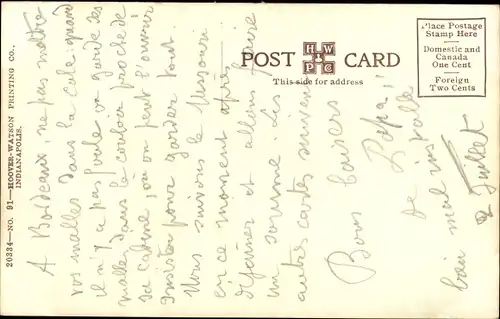 A Bordeaux, ne pas mettre
vos malles dans la cale. quand
il n'y a pas foule on garde des
malles dans le couloir proche de
sa cabine, où on peut l'ouvrir
Insister pour garder tout.
Nous suivons le Missouri
en ce moment après
déjeuner et allons faire
un somme. Les
autres cartes suivent
Bons baisers
Papa!
Je
mal installé
2 Juillet
POST CARD
HWPC
This side for address
Place Postage
Stamp Here
Domestic and
Canada
One Cent
Foreign
Two Cents
20334—NO. 91—HOOVER-WATSON PRINTING CO.,
INDIANAPOLIS.